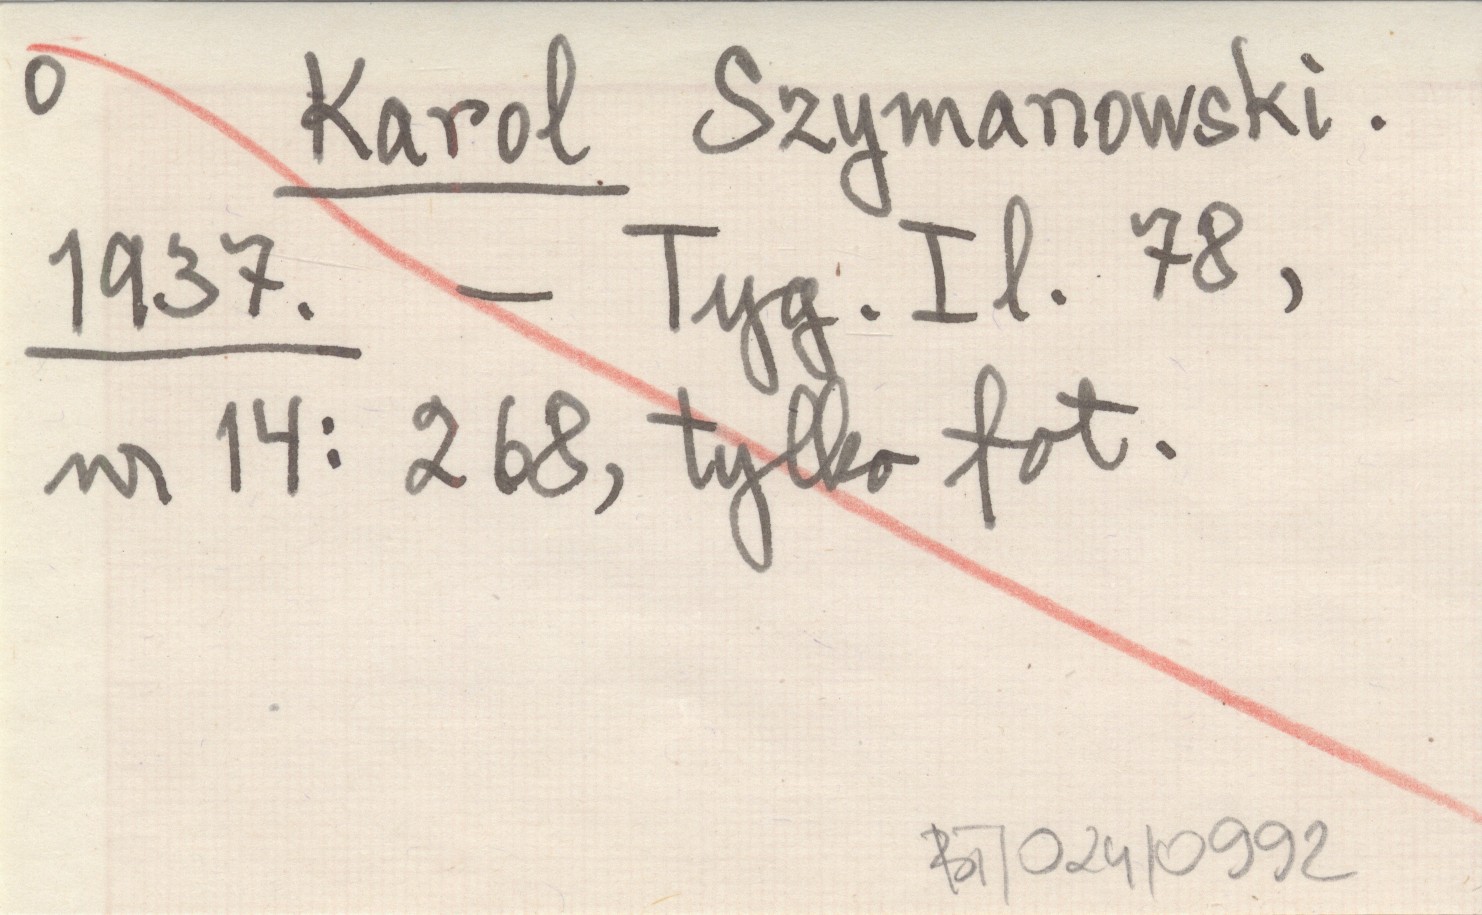 0 Karol Szymanowski.
1937. — Tyg. Il. 78,
nr 14: 268, tylko fot.
BT/024/0992